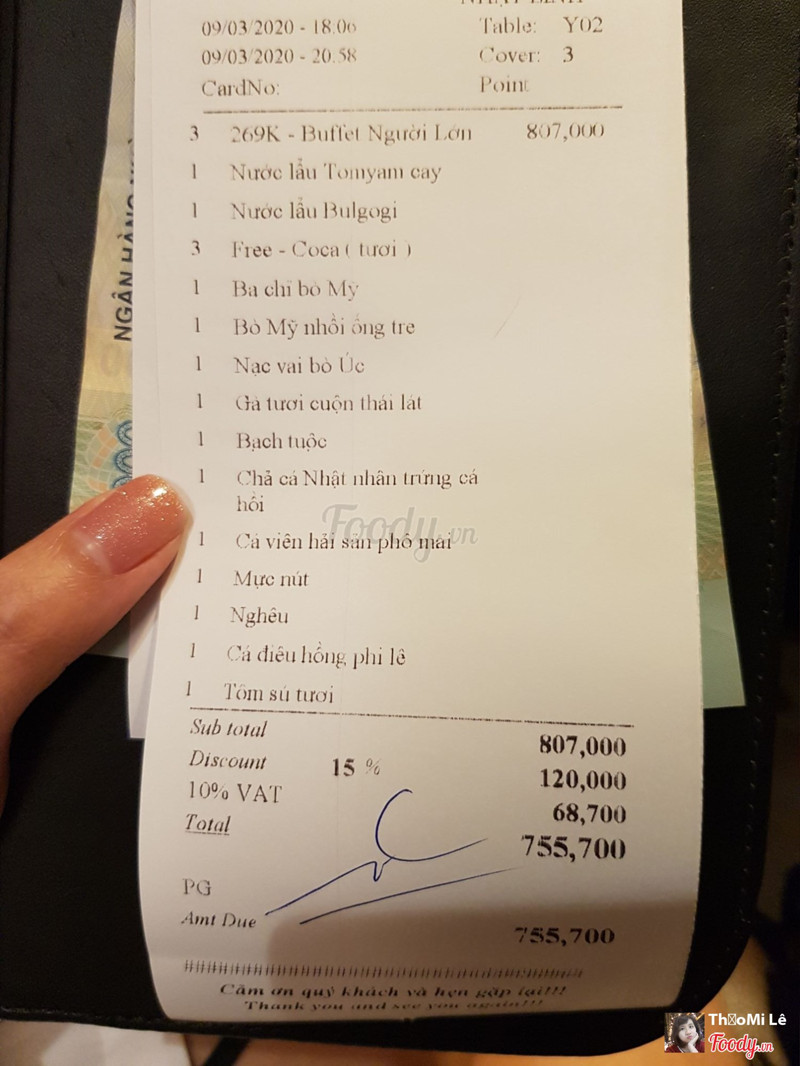 09/03/2020 - 18:06 Table: Y02
09/03/2020 - 20:58 Cover: 3
CardNo: Point
3 269K - Buffet Người Lớn 807,000
1 Nước lẩu Tomyam cay
1 Nước lẩu Bulgogi
3 Free - Coca ( tươi )
1 Ba chỉ bò Mỹ
1 Bò Mỹ nhồi ống tre
1 Nạc vai bò Úc
1 Gà tươi cuộn thái lát
1 Bạch tuộc
1 Chả cá Nhật nhân trứng cá
hồi
1 Cá viên hải sản phô mai
1 Mực nút
1 Nghêu
1 Cá điêu hồng phi lê
1 Tôm sú tươi
Sub total 807,000
Discount 15 % 120,000
10% VAT 68,700
Total 755,700
PG
Amt Due 755,700
Cảm ơn quý khách và hẹn gặp lại!!!
Thank you and see you again!!!
NGÂN HÀNG
Foody.vn
Lê
Foody.vn